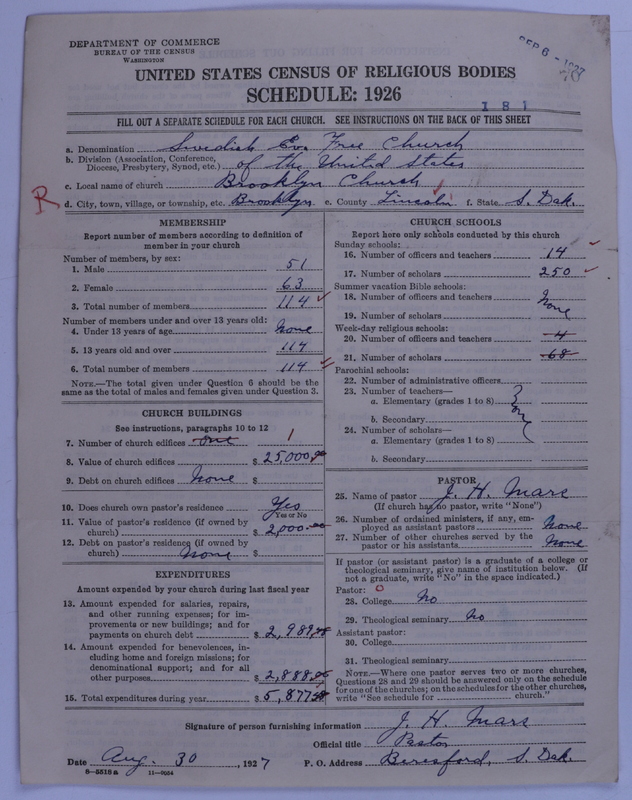 DEPARTMENT OF COMMERCE
BUREAU OF THE CENSUS
WASHINGTON
SEP 6 - 1927
UNITED STATES CENSUS OF RELIGIOUS BODIES
SCHEDULE: 1926
181
FILL OUT A SEPARATE SCHEDULE FOR EACH CHURCH. SEE INSTRUCTIONS ON THE BACK OF THIS SHEET
a. Denomination Swedish Ev. Free Church
b. Division (Association, Conference, Diocese, Presbytery, Synod, etc.) of the United States
c. Local name of church Brooklyn Church
R
d. City, town, village, or township, etc. Brooklyn e. County Lincoln f. State S. Dak.
MEMBERSHIP
Report number of members according to definition of
member in your church
Number of members, by sex:
1. Male 51
2. Female 63
3. Total number of members 114
Number of members under and over 13 years old:
4. Under 13 years of age None
5. 13 years old and over 114
6. Total number of members 114
NOTE.—The total given under Question 6 should be
same as the total of males and females given under Question 3.
CHURCH BUILDINGS
See instructions, paragraphs 10 to 12
7. Number of church edifices one 1
8. Value of church edifices $ 25,000.00
9. Debt on church edifices None $
10. Does church own pastor's residence Yes
Yes or No
11. Value of pastor's residence (if owned by
church) $ 2,000.00
12. Debt on pastor's residence (if owned by
church) None $
EXPENDITURES
Amount expended by your church during last fiscal year
13. Amount expended for salaries, repairs,
and other running expenses; for im-
provements or new buildings; and for
payments on church debt $ 2,989
14. Amount expended for benevolences, in-
cluding home and foreign missions; for
denominational support; and for all
other purposes $ 2,888
15. Total expenditures during year $ 5,877
CHURCH SCHOOLS
Report here only schools conducted by this church
Sunday schools:
16. Number of officers and teachers 14
17. Number of scholars 250
Summer vacation Bible schools:
18. Number of officers and teachers None
19. Number of scholars
Week-day religious schools:
20. Number of officers and teachers 4
21. Number of scholars 68
Parochial schools:
22. Number of administrative officers
23. Number of teachers—
a. Elementary (grades 1 to 8)
b. Secondary
24. Number of scholars—
a. Elementary (grades 1 to 8)
b. Secondary
PASTOR
25. Name of pastor J. H. Mars
(If church has no pastor, write "None")
26. Number of ordained ministers, if any, em-
ployed as assistant pastors None
27. Number of other churches served by the
pastor or his assistants None
If pastor (or assistant pastor) is a graduate of a college or
theological seminary, give name of institution below. (If
not a graduate, write "No" in the space indicated.)
Pastor: 0
28. College No
29. Theological seminary No
Assistant pastor:
30. College
31. Theological seminary
NOTE.—Where one pastor serves two or more churches,
Questions 28 and 29 should be answered only on the schedule
for one of the churches; on the schedules for the other churches,
write "See schedule for church."
Signature of person furnishing information J. H. Mars
Official title Pastor
Date Aug. 30, 1927 P. O. Address Beresford, S. Dak.
8-5518a 11-9024